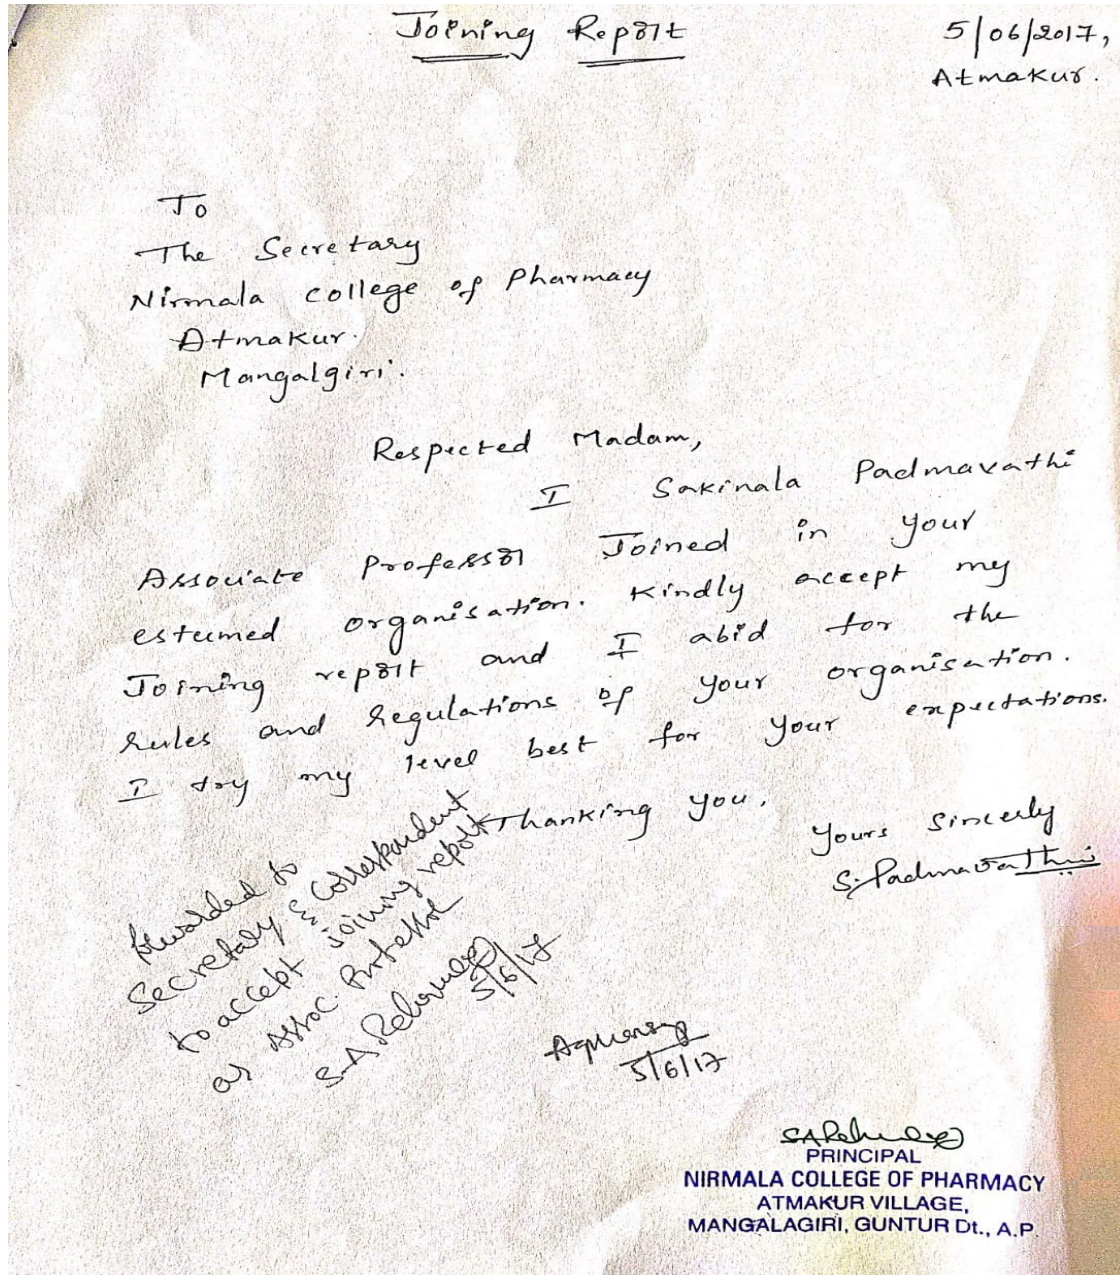 Joining Report
5/06/2017,
Atmakur.
To
The Secretary
Nirmala college of Pharmacy
Atmakur.
Mangalgiri.
Respected Madam,
I Sakinala Padmavathi
Associate Professor Joined in your
esteemed organisation. Kindly accept my
Joining report and I abid for the
rules and regulations of your organisation.
I try my level best for your expectations.
Thanking you,
Yours Sincerly
S. Padmavathi
Forwarded to
Secretary & Correspondent
to accept joining report
as Assoc. Professor
S.A. Rehman
5/6/17
5/6/17
PRINCIPAL
NIRMALA COLLEGE OF PHARMACY
ATMAKUR VILLAGE,
MANGALAGIRI, GUNTUR Dt., A.P.